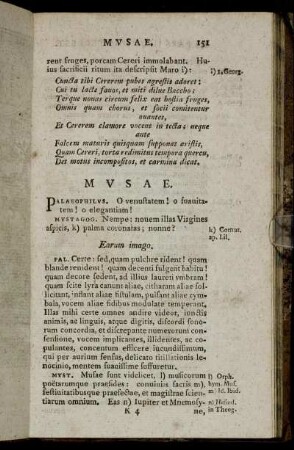 MVSAE. 151
rent fruges, porcam Cereri immolabant. Hu-
ius sacrificii ritum ita descripsit Maro i): i) 1. Georg.
Cuncta tibi Cererem pubes agrestis adoret:
Cui tu lacte fauos, et miti dilue Baccho:
Terque nouas circum felix eat hostia fruges,
Omnis quam chorus, et socii comitentur
ouantes,
Et Cererem clamore vocent in tecta: neque
ante
Falcem maturis quisquam supponat aristis,
Quam Cereri, torta redimitus tempora quercu,
Det motus incompositos, et carmina dicat.
MVSAE.
PALAEOPHILVS. O venustatem! o suauita-
tem! o elegantiam!
MYSTAGOG. Nempe: nouem illas Virgines
aspicis, k) palma coronatas; nonne? k) Cornut.
ap. Lil.
Earum imago.
PAL. Certe: sed, quam pulcre rident! quam
blande renident! quam decenti fulgent habitu!
quam decore sedent, ad illius laureti vmbram!
quam scite aliae canunt aliae, citharam aliae sol-
licitant, inflant aliae fistulam, pulsant aliae cym-
bala, vocem aliae fidibus modulate temperant.
Illas nihi certe omnes andire videor, iunctis
animis, ac linguis, atque digitis, discordi sono-
rum concordia, et dispari numerorum con-
sensione, vocem implicantes, illidentes, ac co-
pulantes, concentum efficere iucundissimum,
qui per aurium sensus, delicato titillationis le-
nocinio, mentem suauissime suffuretur.
MYST. Musae sunt videlicet, l) musicorum l) Orph.
poëtarumque praesides: conuiuiis sacris m), hym. Mus.
festiuitatibusque praefectae, et magistrae scien- m) Id. Ibid.
tiarum omnium. Eas n) Iupiter et Mnemosy- n) Hesiod.
K 4 ne, in Theog.